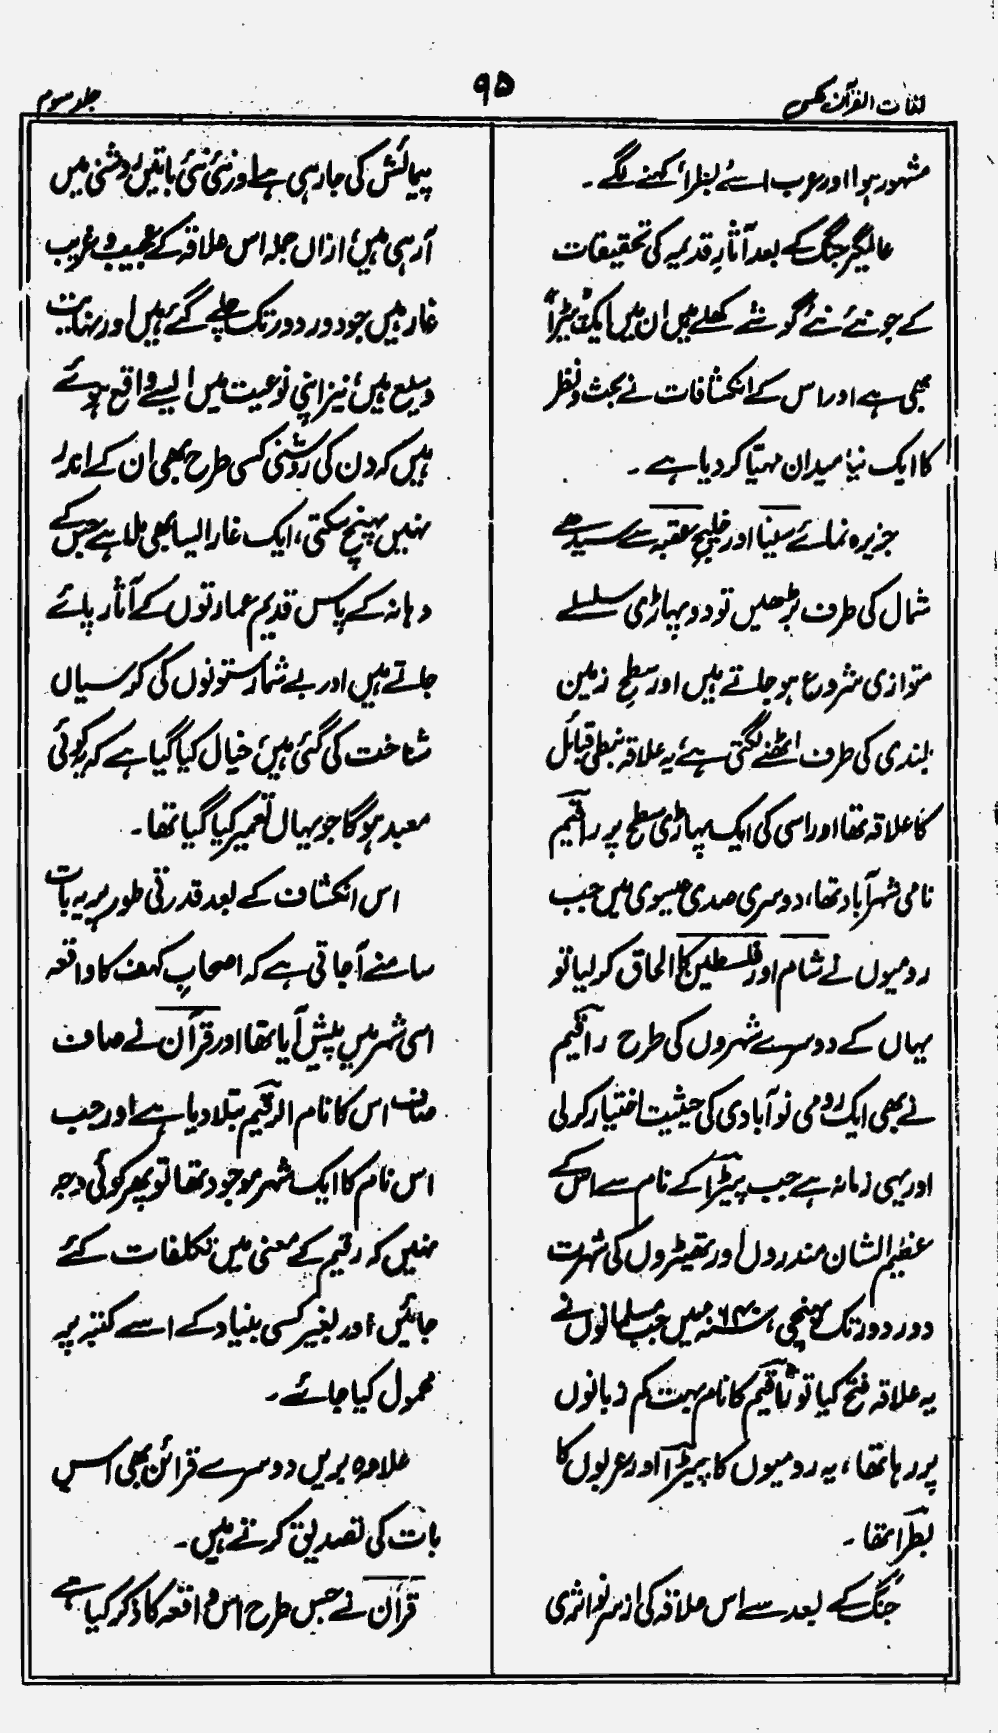 لغات القرآن مکمل
۹۵
جلد سوم
مشہور ہوا اور عرب اسے بطرا کہنے لگے۔
عالمگیر جنگ کے بعد آثارِ قدیمہ کی تحقیقات
کے جو نئے نئے گوشے کھلے ہیں ان میں ایک "پیٹرا"
بھی ہے اور اس کے انکشافات نے بحث و نظر
کا ایک نیا میدان مہیا کر دیا ہے۔
جزیرہ نمائے سینا اور خلیجِ عقبہ سے سیدھے
شمال کی طرف بڑھیں تو دو پہاڑی سلسلے
متوازی شروع ہو جاتے ہیں اور سطحِ زمین
بلندی کی طرف اٹھنے لگتی ہے، یہ علاقہ نبطی قبائل
کا علاقہ تھا اور اسی کی ایک پہاڑی سطح پر راقیم
نامی شہر آباد تھا، دوسری صدی عیسوی میں جب
رومیوں نے شام اور فلسطین کا الحاق کر لیا تو
یہاں کے دوسرے شہروں کی طرح راقیم
نے بھی ایک رومی نو آبادی کی حیثیت اختیار کر لی
اور یہی زمانہ ہے جب پیٹرا کے نام سے اس کے
عظیم الشان مندروں اور تھیٹروں کی شہرت
دور دور تک پہنچی، ۶۴۰ء میں جب مسلمانوں نے
یہ علاقہ فتح کیا تو راقیم کا نام بہت کم زبانوں
پر رہا تھا، یہ رومیوں کا پیٹرا اور عربوں کا
بطرا تھا۔
جنگ کے بعد سے اس علاقہ کی از سر نو اثری
پیمائش کی جا رہی ہے اور نئی نئی باتیں روشنی میں
آ رہی ہیں، ازاں جملہ اس علاقہ کے عجیب و غریب
غار ہیں جو دور دور تک چلے گئے ہیں اور نہایت
وسیع ہیں، نیز اپنی نوعیت میں ایسے واقع ہوئے
ہیں کہ دن کی روشنی کسی طرح بھی ان کے اندر
نہیں پہنچ سکتی، ایک غار ایسا بھی ملا ہے جس کے
دہانہ کے پاس قدیم عمارتوں کے آثار پائے
جاتے ہیں اور بے شمار ستونوں کی کرسیاں
شناخت کی گئی ہیں، خیال کیا گیا ہے کہ یہ کوئی
معبد ہوگا جو یہاں تعمیر کیا گیا تھا۔
اس انکشاف کے بعد قدرتی طور پر یہ بات
سامنے آ جاتی ہے کہ اصحابِ کہف کا واقعہ
اسی شہر میں پیش آیا تھا اور قرآن نے صاف
صاف اس کا نام الرقیم بتلا دیا ہے اور جب
اس نام کا ایک شہر موجود تھا تو پھر کوئی وجہ
نہیں کہ رقیم کے معنی میں تکلفات کئے
جائیں اور بغیر کسی بنیاد کے اسے کتبہ پر
محمول کیا جائے۔
علاوہ بریں دوسرے قرائن بھی اس
بات کی تصدیق کرتے ہیں۔
قرآن نے جس طرح اس واقعہ کا ذکر کیا ہے